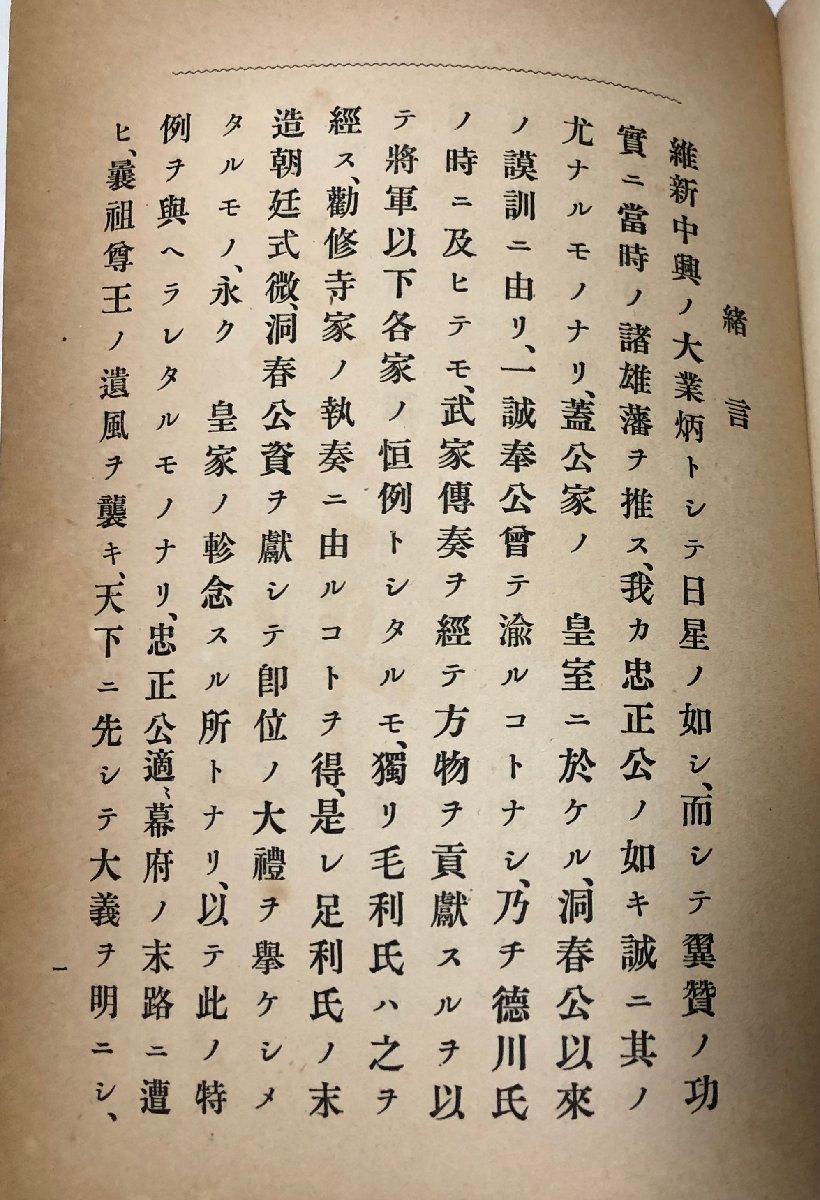 緒言
維新中興ノ大業炳トシテ日星ノ如シ、而シテ翼贊ノ功
實ニ當時ノ諸雄藩ヲ推ス、我カ忠正公ノ如キ誠ニ其ノ
尤ナルモノナリ、蓋公家ノ　皇室ニ於ケル、洞春公以來
ノ謨訓ニ由リ、一誠奉公曾テ渝ルコトナシ、乃チ德川氏
ノ時ニ及ヒテモ、武家傳奏ヲ經テ方物ヲ貢獻スルヲ以
テ將軍以下各家ノ恒例トシタルモ、獨リ毛利氏ハ之ヲ
經ス、勸修寺家ノ執奏ニ由ルコトヲ得、是レ足利氏ノ末
造朝廷式微、洞春公資ヲ獻シテ卽位ノ大禮ヲ擧ケシメ
タルモノ、永ク　皇家ノ軫念スル所トナリ、以テ此ノ特
例ヲ與ヘラレタルモノナリ、忠正公適〻幕府ノ末路ニ遭
ヒ、曩祖尊王ノ遺風ヲ襲キ、天下ニ先シテ大義ヲ明ニシ、
一